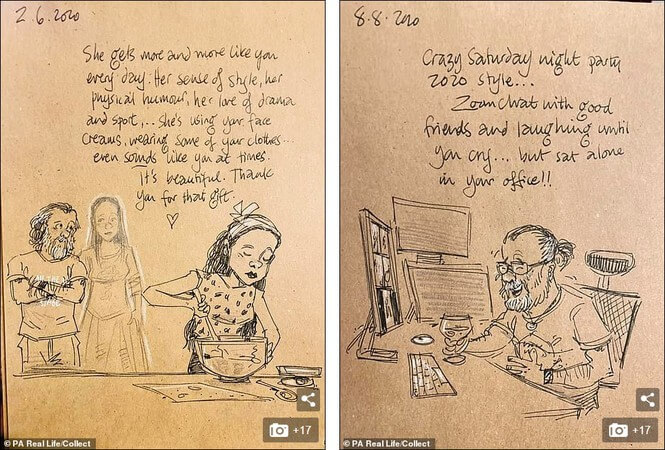 2.6.2020
She gets more and more like you
every day. Her sense of style, her
physical humour, her love of drama
and sport,.. She's using your face
creams, wearing some of your clothes...
even sounds like you at times.
It's beautiful. Thank
you for that gift.
+17
© PA Real Life/Collect
8.8.2020
Crazy Saturday night party
2020 style...
Zoom chat with good
friends and laughing until
you cry... but sat alone
in your office!!
+17
© PA Real Life/Collect